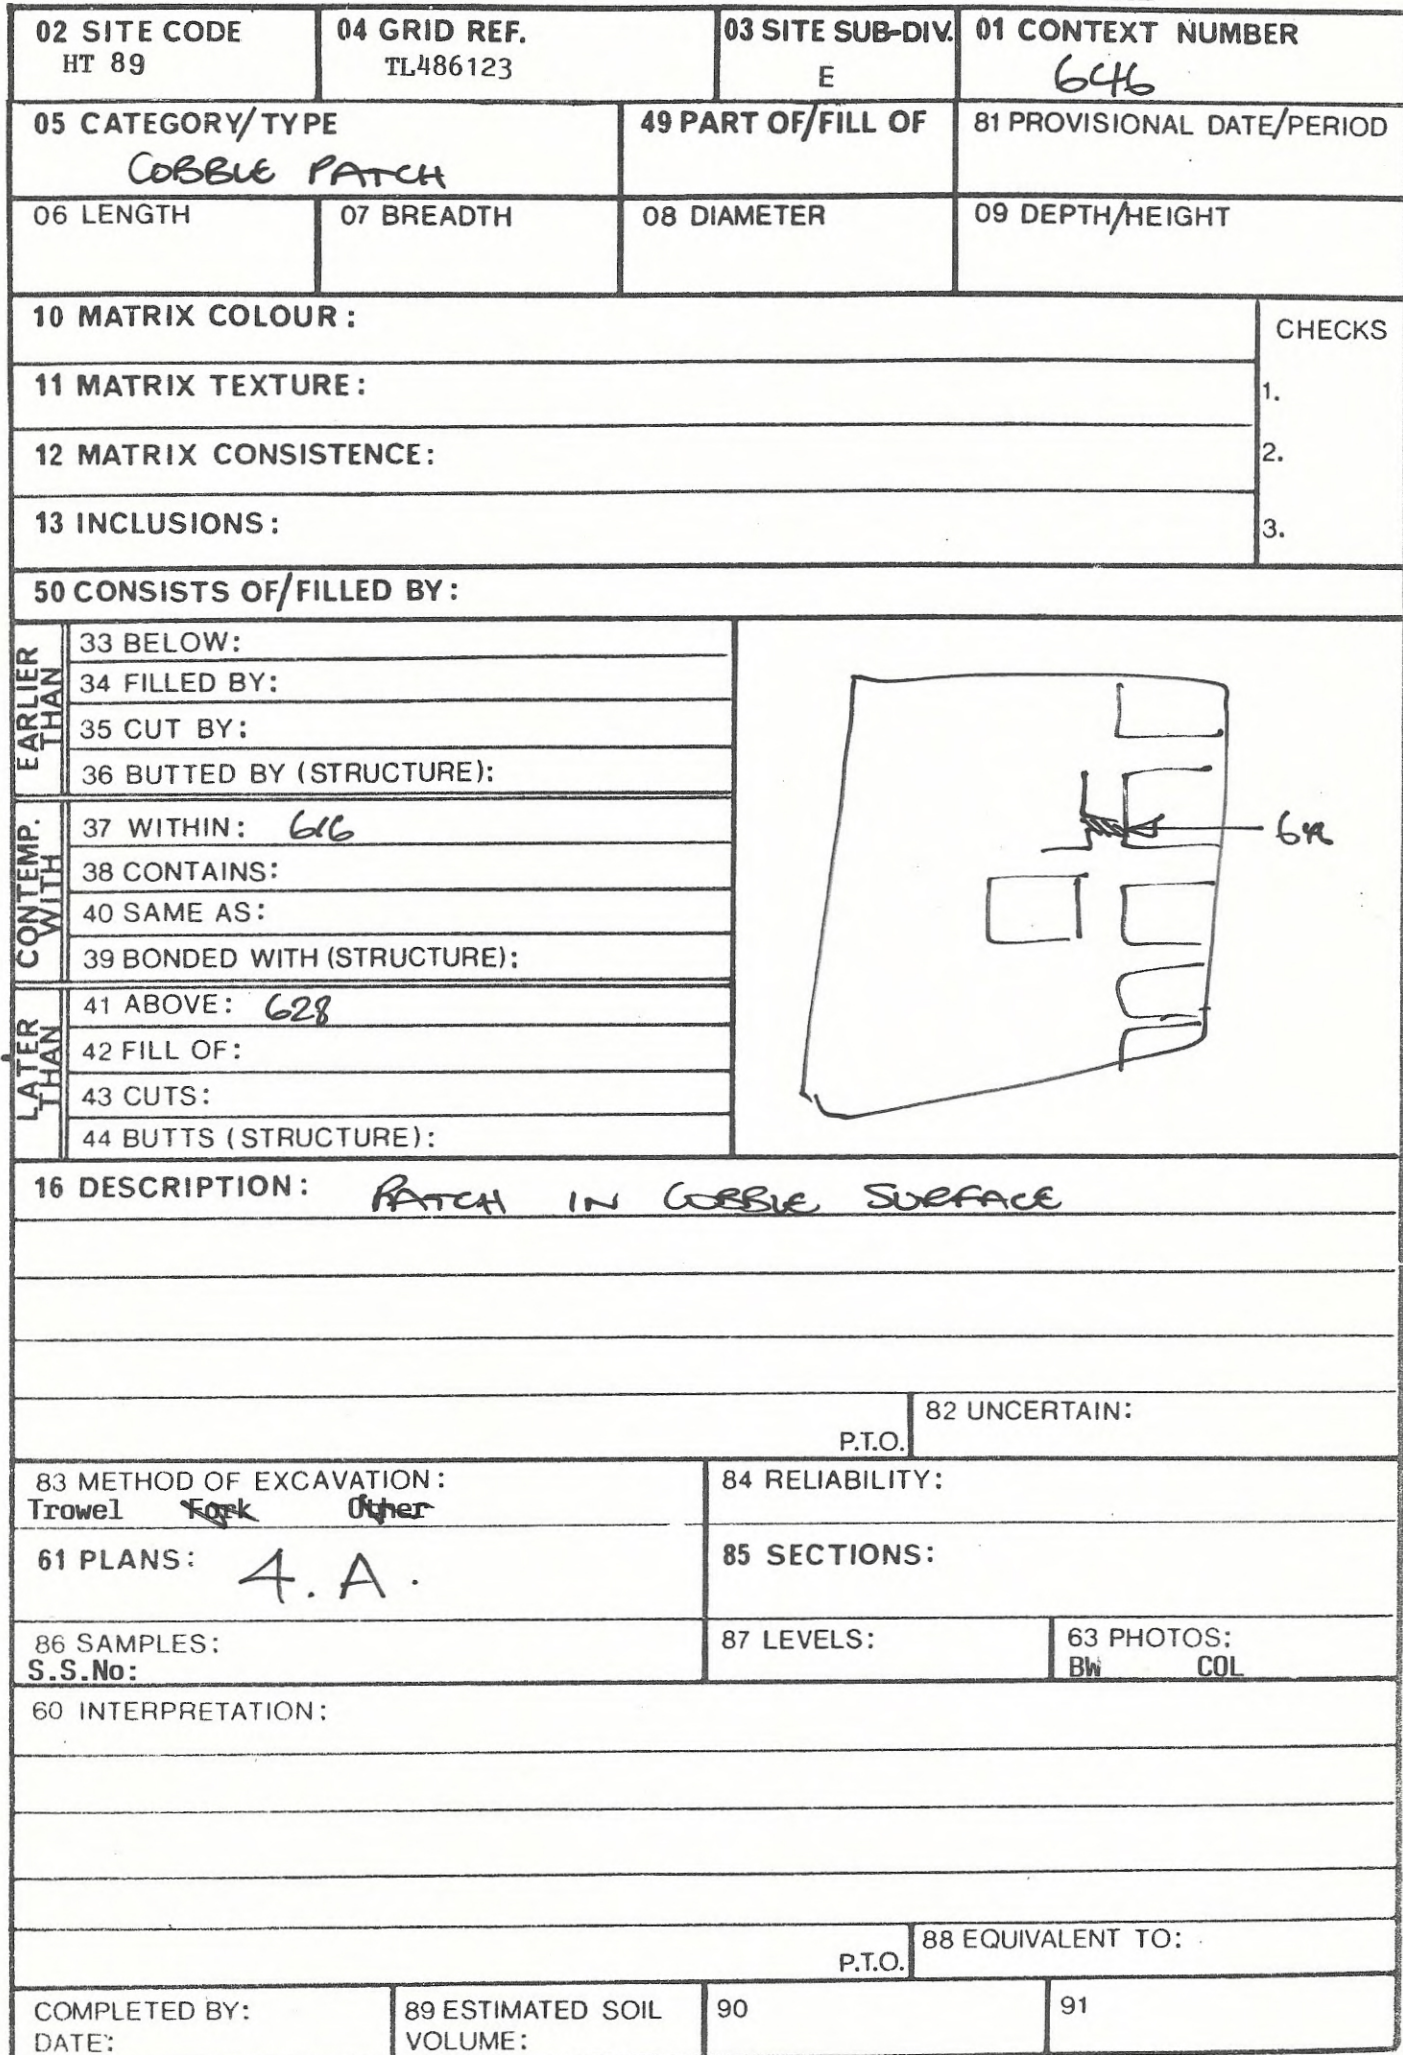 02 SITE CODE
HT 89
04 GRID REF.
TL486123
03 SITE SUB-DIV.
E
01 CONTEXT NUMBER
646
05 CATEGORY/TYPE
COBBLE PATCH
49 PART OF/FILL OF
81 PROVISIONAL DATE/PERIOD
06 LENGTH
07 BREADTH
08 DIAMETER
09 DEPTH/HEIGHT
10 MATRIX COLOUR:
11 MATRIX TEXTURE:
12 MATRIX CONSISTENCE:
13 INCLUSIONS:
CHECKS
1.
2.
3.
50 CONSISTS OF/FILLED BY:
EARLIER THAN
33 BELOW:
34 FILLED BY:
35 CUT BY:
36 BUTTED BY (STRUCTURE):
CONTEMP. WITH
37 WITHIN: 616
38 CONTAINS:
40 SAME AS:
39 BONDED WITH (STRUCTURE):
LATER THAN
41 ABOVE: 628
42 FILL OF:
43 CUTS:
44 BUTTS (STRUCTURE):
16 DESCRIPTION: PATCH IN COBBLE SURFACE
P.T.O.
82 UNCERTAIN:
83 METHOD OF EXCAVATION:
Trowel Fork Other
84 RELIABILITY:
61 PLANS: 4.A.
85 SECTIONS:
86 SAMPLES:
S.S.No:
87 LEVELS:
63 PHOTOS:
BW COL
60 INTERPRETATION:
P.T.O.
88 EQUIVALENT TO:
COMPLETED BY:
DATE:
89 ESTIMATED SOIL
VOLUME:
90
91